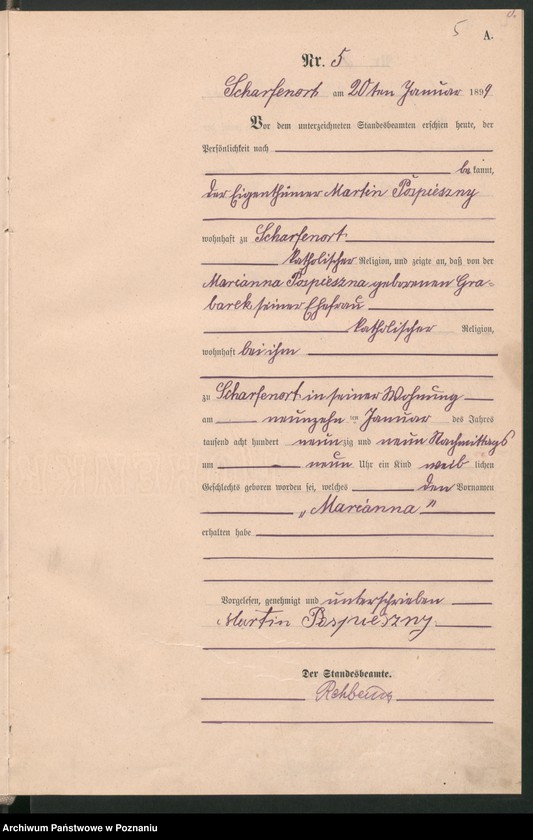 5
A.
Nr. 5
Scharfenort am 20ten Januar 1899
Vor dem unterzeichneten Standesbeamten erschien heute, der
Persönlichkeit nach
bekannt,
der Eigenthümer Martin Pospieszny
wohnhaft zu Scharfenort
katholischer Religion, und zeigte an, daß von der
Marianna Pospieszna geborenen Gra-
barek seiner Ehefrau
katholischer Religion,
wohnhaft bei ihm
zu Scharfenort in seiner Wohnung
am neunzehnten Januar des Jahres
tausend acht hundert neunzig und neun Nachmittags
um neun Uhr ein Kind weiblichen
Geschlechts geboren worden sei, welches den Vornamen
„Marianna"
erhalten habe
Vorgelesen, genehmigt und unterschrieben
Martin Pospieszny
Der Standesbeamte.
Archiwum Państwowe w Poznaniu